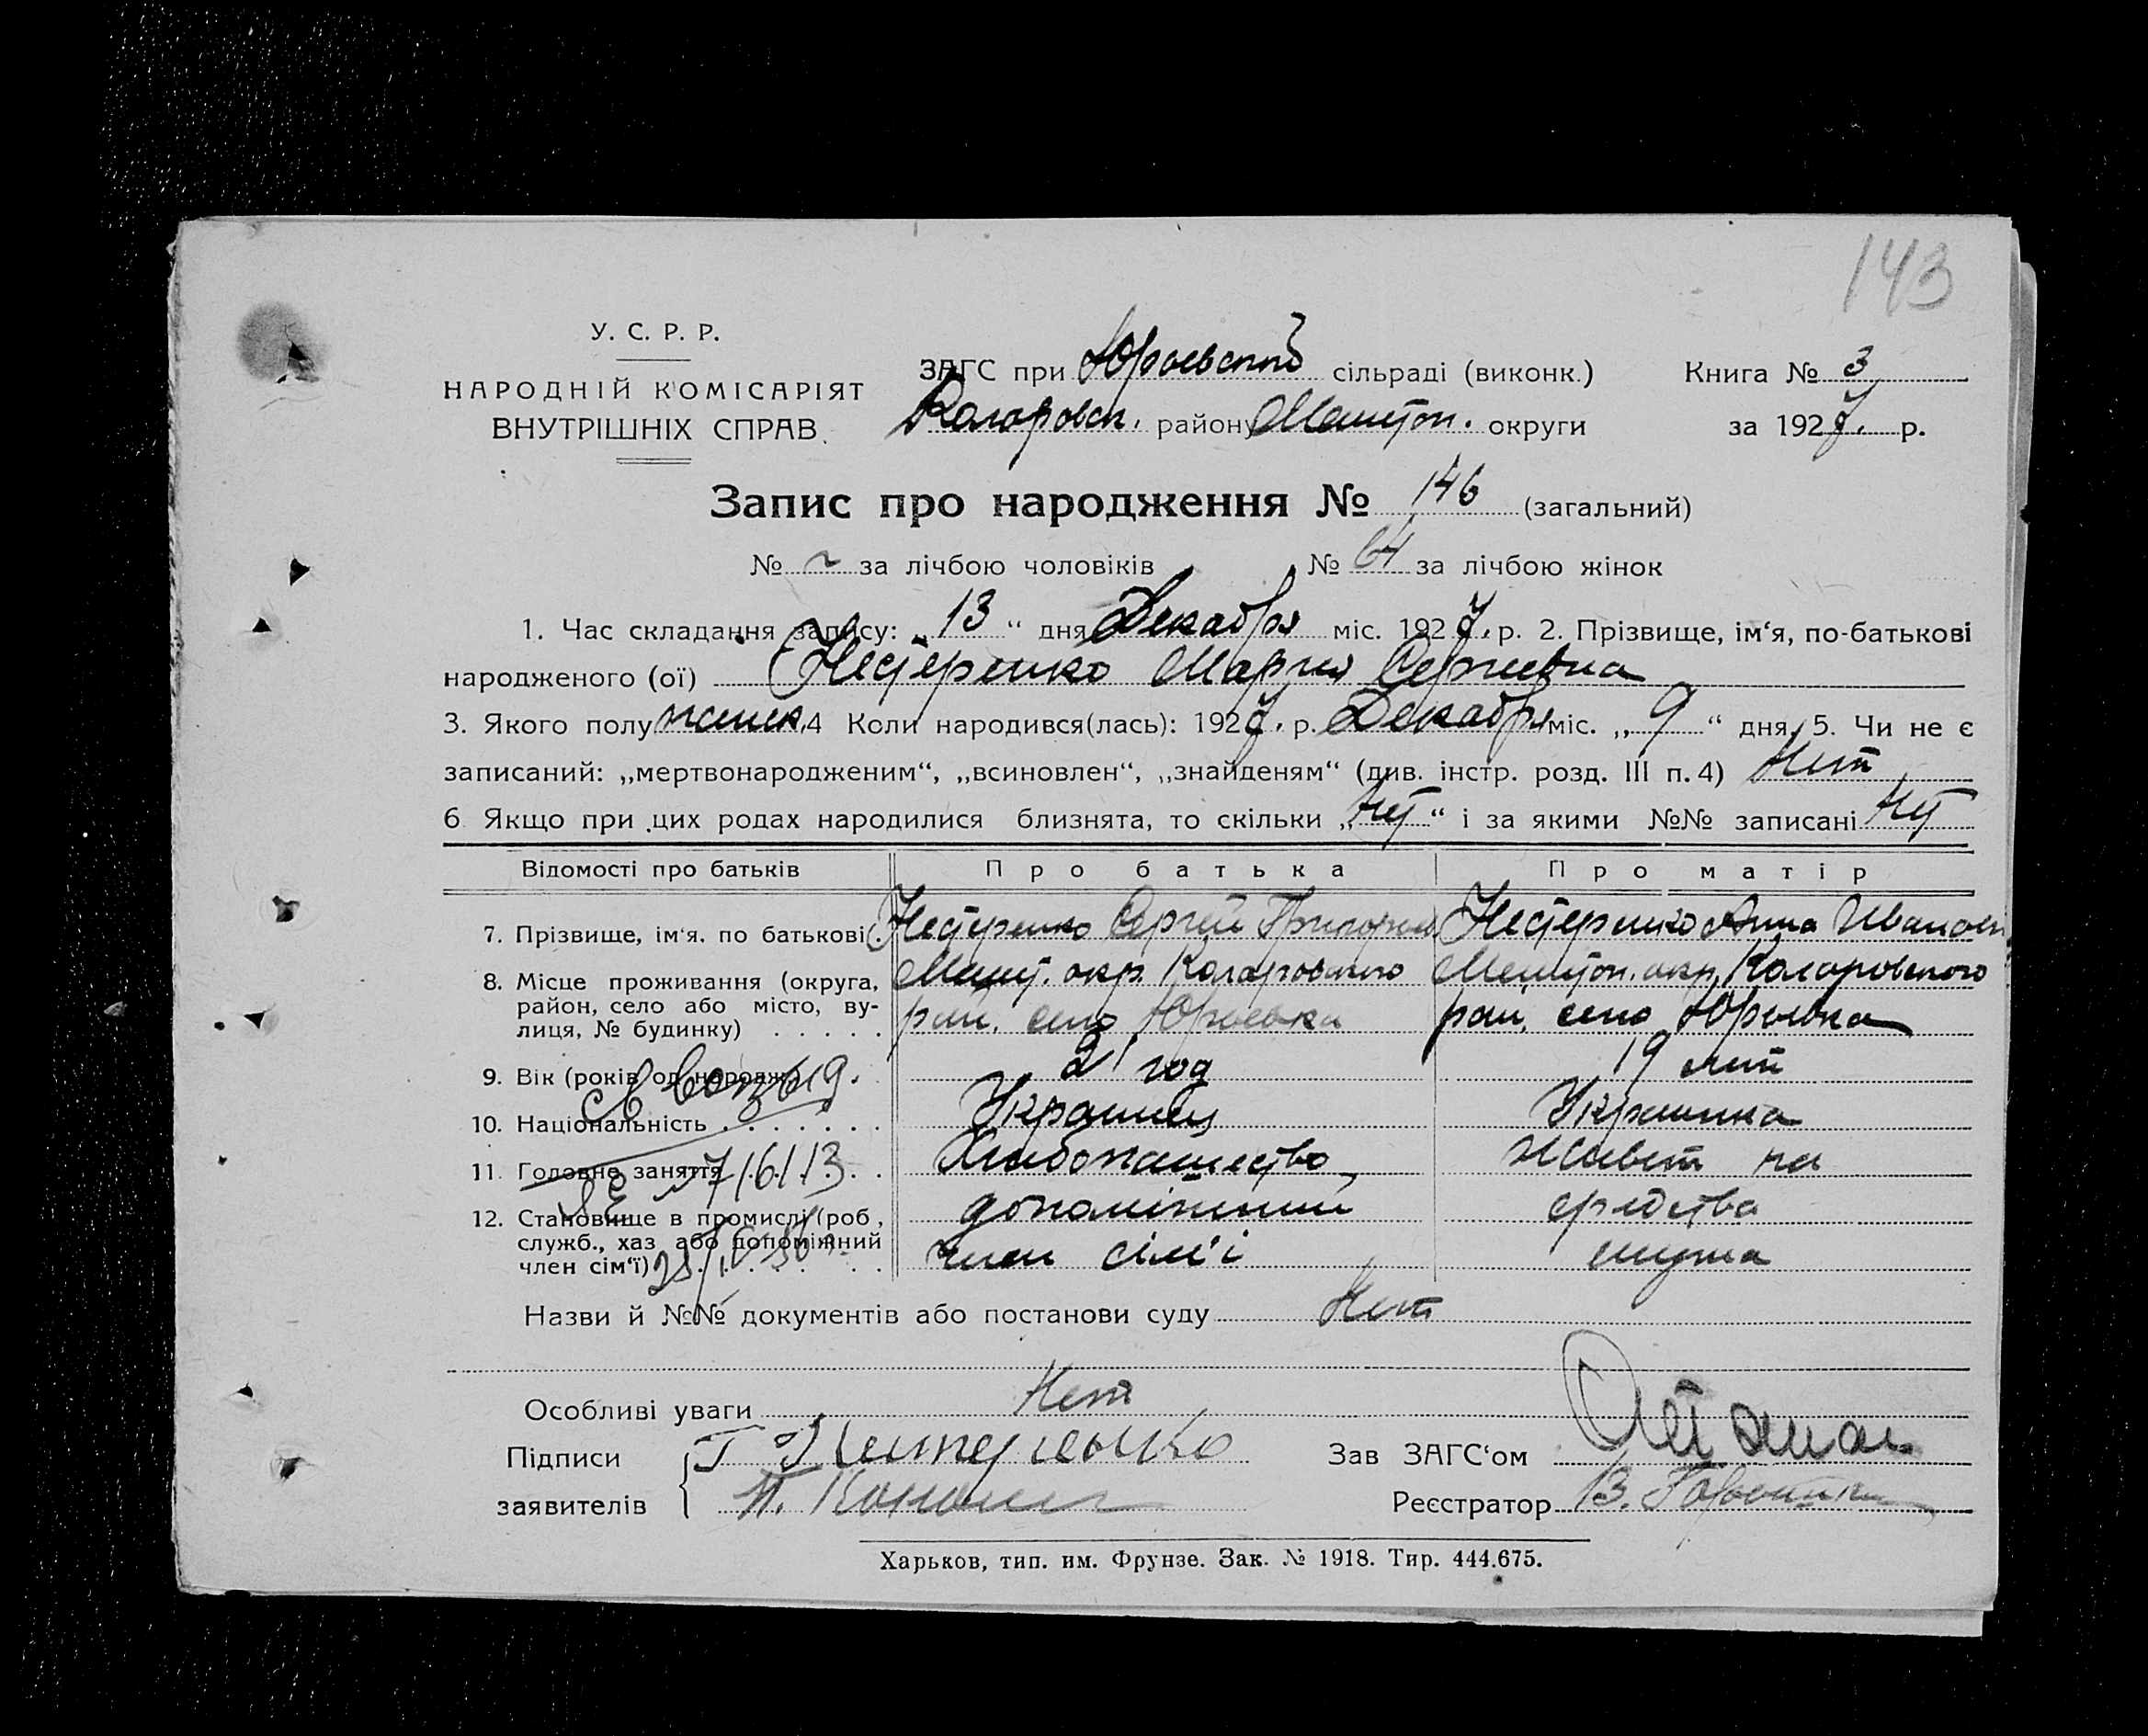 143
У. С. Р. Р.
НАРОДНІЙ КОМІСАРІЯТ
ВНУТРІШНІХ СПРАВ.
ЗАГС при Юрьевской сільраді (виконк.)
Коларовск. району Мелитоп. округи
Книга № 3
за 1927. р.
Запис про народження № 146 (загальний)
№ ~ за лічбою чоловіків № 64 за лічбою жінок
1. Час складання запису: „13“ дня Декабря міс. 1927. р. 2. Прізвище, ім‘я, по-батькові
народженого (ої) Нестеренко Мария Сергеевна
3. Якого полу женск. 4 Коли народився(лась): 1927. р. Декабря міс. „9“ дня. 5. Чи не є
записаний: „мертвонародженим“, „всиновлен“, „знайденям“ (див. інстр. розд. III п. 4) Нет
6 Якщо при цих родах народилися близнята, то скільки „Нет“ і за якими №№ записані Нет
Відомості про батьків Про батька Про матір
7. Прізвище, ім‘я. по батькові. Нестеренко Сергей Григорьев. Нестеренко Анна Иванов
8. Місце проживання (округа, Мелит. окр. Коларовского Мелитоп. окр. Коларовского
район, село або місто, ву-
лиця, № будинку) . . . . . рай. село Юрьевка рай. село Юрьевка
9. Вік (років од народж.) . 21 год 19 лет
10. Національність . . . . . . . Украинец Украинка
11. Головне заняття . . . . . Хлебопашество Живет на
12. Становище в промислі (роб, допоміжний средства
служб., хаз або допоміжний
член сім‘ї) . . . . . . член сім'ї мужа
Назви й №№ документів або постанови суду Нет
Особливі уваги Нет
Підписи
заявителів
Зав ЗАГС‘ом
Реєстратор В.
Харьков, тип. им. Фрунзе. Зак. № 1918. Тир. 444.675.